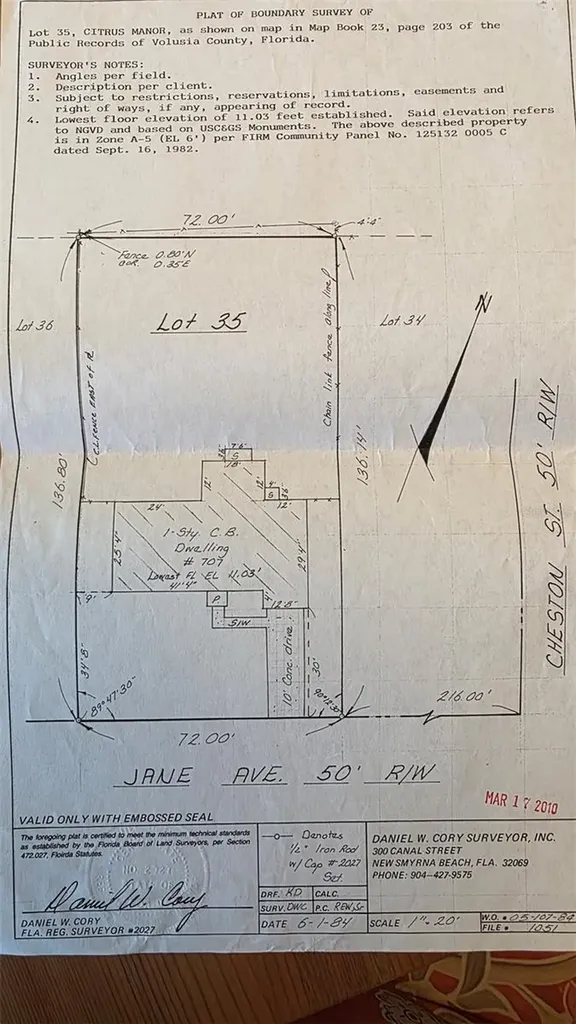 PLAT OF BOUNDARY SURVEY OF
Lot 35, CITRUS MANOR, as shown on map in Map Book 23, page 203 of the
Public Records of Volusia County, Florida.
SURVEYOR'S NOTES:
1. Angles per field.
2. Description per client.
3. Subject to restrictions, reservations, limitations, easements and
right of ways, if any, appearing of record.
4. Lowest floor elevation of 11.03 feet established. Said elevation refers
to NGVD and based on USC&GS Monuments. The above described property
is in Zone A-5 (EL 6') per FIRM Community Panel No. 125132 0005 C
dated Sept. 16, 1982.
72.00'
4'4"
Fence 0.80'N
COR. 0.35'E
Lot 36
Lot 35
Lot 34
N
Chain link fence along line
136.80'
136.74'
CHESTON ST. 50' R/W
7'6"
3'6"
S
18'
12'
12'
4'
S
3'6"
24'
12'
1-Sty. C.B.
Dwelling
# 707
Lowest FL EL 11.03'
41'4"
25'4"
29'4"
9'
P.
4'
12'8"
S/W
34'8"
10' Conc. drive
30'
89°47'30"
90°12'30"
216.00'
72.00'
JANE AVE. 50' R/W
MAR 17 2010
VALID ONLY WITH EMBOSSED SEAL
The foregoing plat is certified to meet the minimum technical standards
as established by the Florida Board of Land Surveyors, per Section
472.027, Florida Statutes.
Daniel W. Cory
DANIEL W. CORY
FLA. REG. SURVEYOR #2027
Denotes
1/2" Iron Rod
w/ Cap #2027
Set.
DRF. KD CALC.
SURV. DWC P.C. REW, Sr
DATE 6-1-84
DANIEL W. CORY SURVEYOR, INC.
300 CANAL STREET
NEW SMYRNA BEACH, FLA. 32069
PHONE: 904-427-9575
SCALE 1"-20'
W.O. # 05-107-84
FILE # 1051